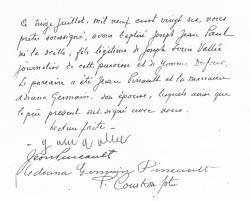 Ce treize juillet, mil neuf cent vingt six, nous
prêtre soussigné, avons baptisé Joseph Jean Paul
né la veille, fils légitime de Joseph Vallée
journalier de cette paroisse et de Yvonne
Le parrain a été Jean Pineault et la marraine
Adriana Germain, son épouse, lesquels ainsi que
le père présent ont signé avec nous.
Lecture faite
Jean Pineault
Adriana Germain Pineault